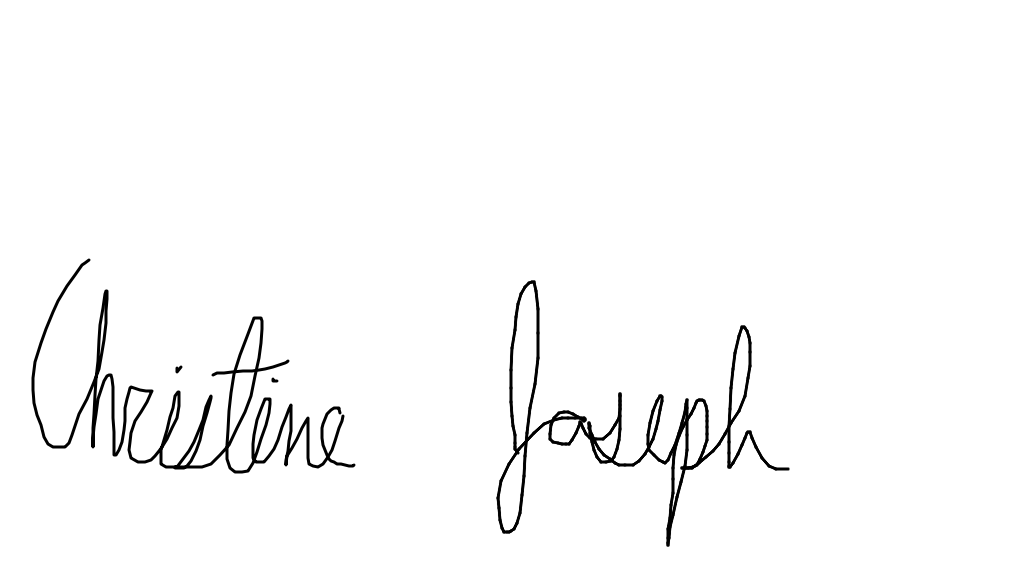 Christine Joseph